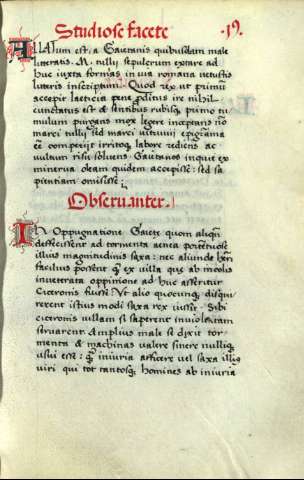 Studiose facete
.19.
ALLATum est, a Gaetanis quibusdam male
literatis. M. tullii sepulcrum extare ad
huc iuxta formias in via romana vetustis
literis inscriptum. Quod rex ut primum
accepit laeticia pene perditus ire nihil
cunctatus est & sentibus rubisq; primo tu
mulum purgans mox legere inceptans nō
marci tullii sed marci vitruvii epigrāma
eē comperit irritoq; labore rediens ac
vultum risu solvens Gaetanos inquit ex
minerva oleam quidem accepisse: sed sa
pientiam omisisse.
Observanter.
IN Oppugnatione Gaiete quom aliqñ
defecissent ad tormenta aenea portentuose
illius magnitudinis saxa: nec aliunde hēri
facilius possent q; ex villa que ab incolis
inveterata oppinione ad huc asseritur
Ciceronis fuisse. Vt alio quocunq; disqui
rerent istius modi saxa rex iussit. Sibi
ciceronis villam si saperent inviolatam
servarent. Amplius male si dixit tor
menta & machinas valere sinere nulliq;
usui esse: q; iniuria afficere vel saxa illiq
viri qui tot tantosq; homines ab iniuria